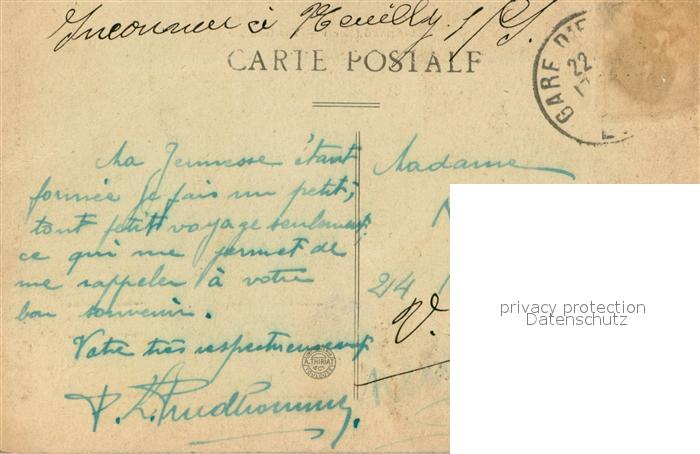 Inconnue à Neuilly s/S.
CARTE POSTALE
GARE D'E
22
Ma Jeunesse étant
formée je fais un petit,
tout petit voyage seulement,
ce qui me permet de
me rappeler à votre
bon souvenir.
Votre très respectueusement
P. L. Prudhomme.
A. THIRIAT
& Cie
TOULOUSE
Madame
214
V.
privacy protection
Datenschutz